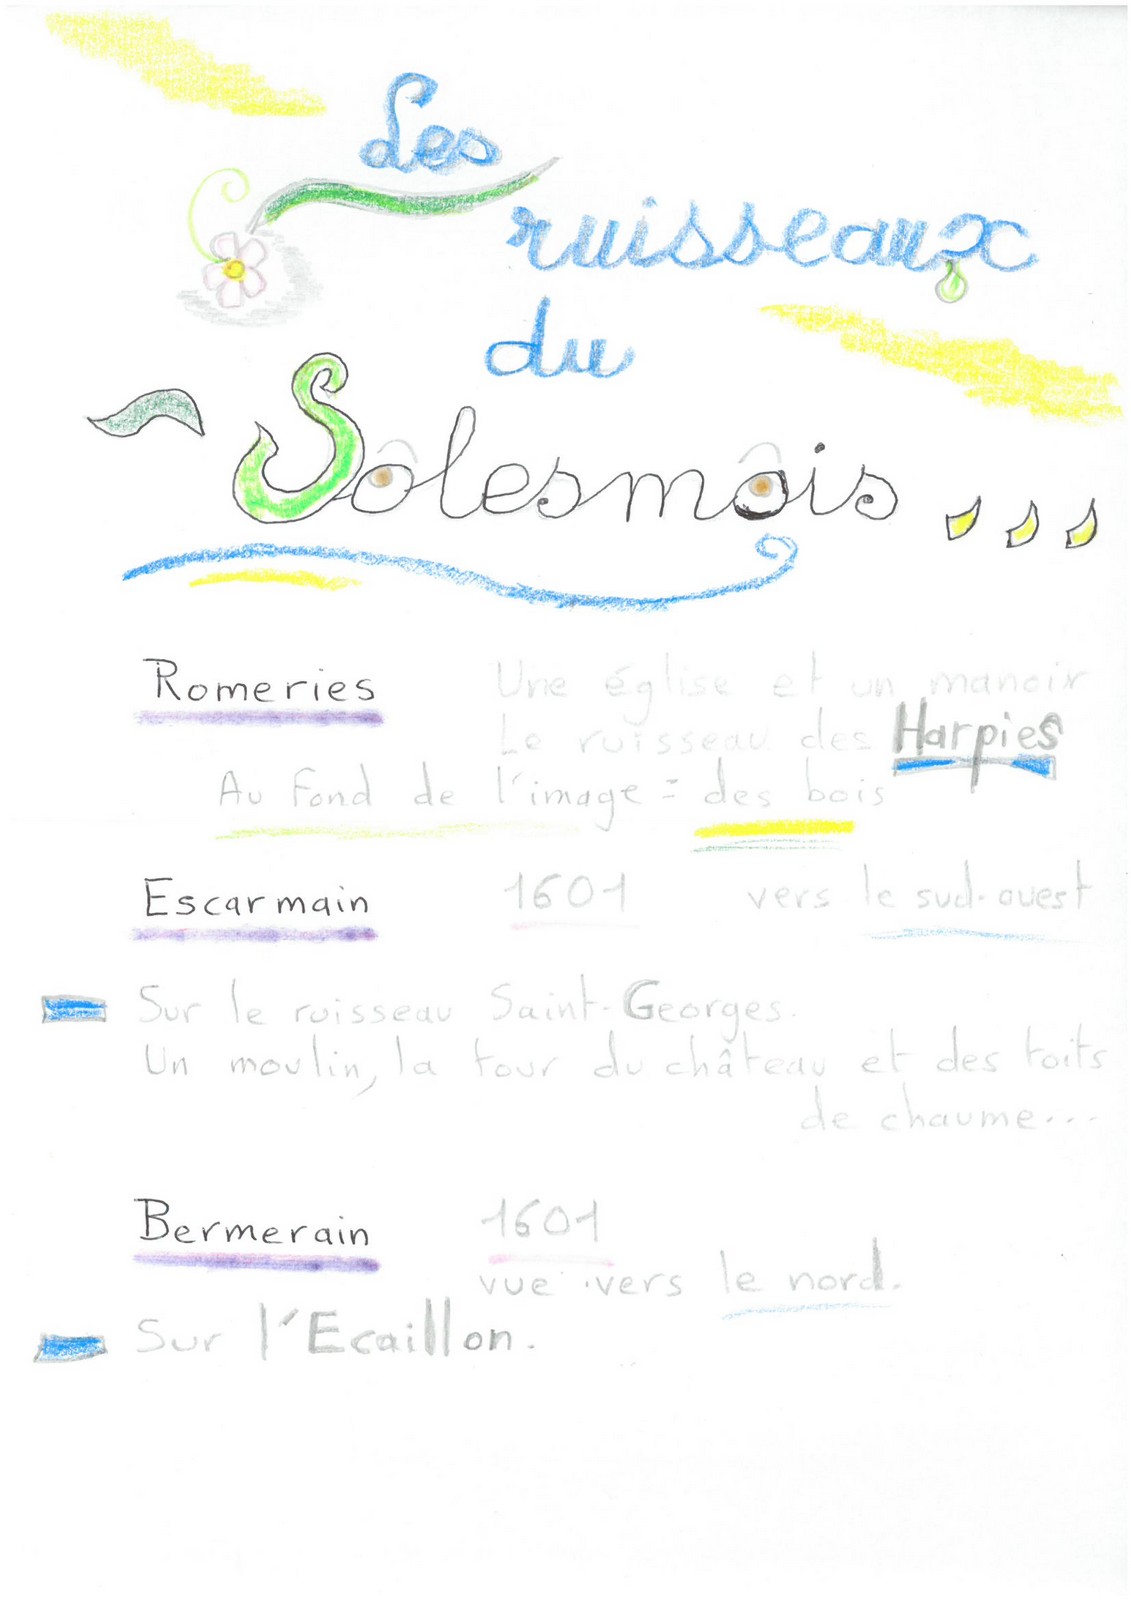 Les
ruisseaux
du
Sôlesmôis...
Romeries Une église et un manoir
Le ruisseau des Harpies
Au fond de l'image = des bois
Escarmain 1601 vers le sud-ouest
Sur le ruisseau Saint-Georges.
Un moulin, la tour du château et des toits
de chaume...
Bermerain 1601
vue vers le nord.
Sur l'Ecaillon.